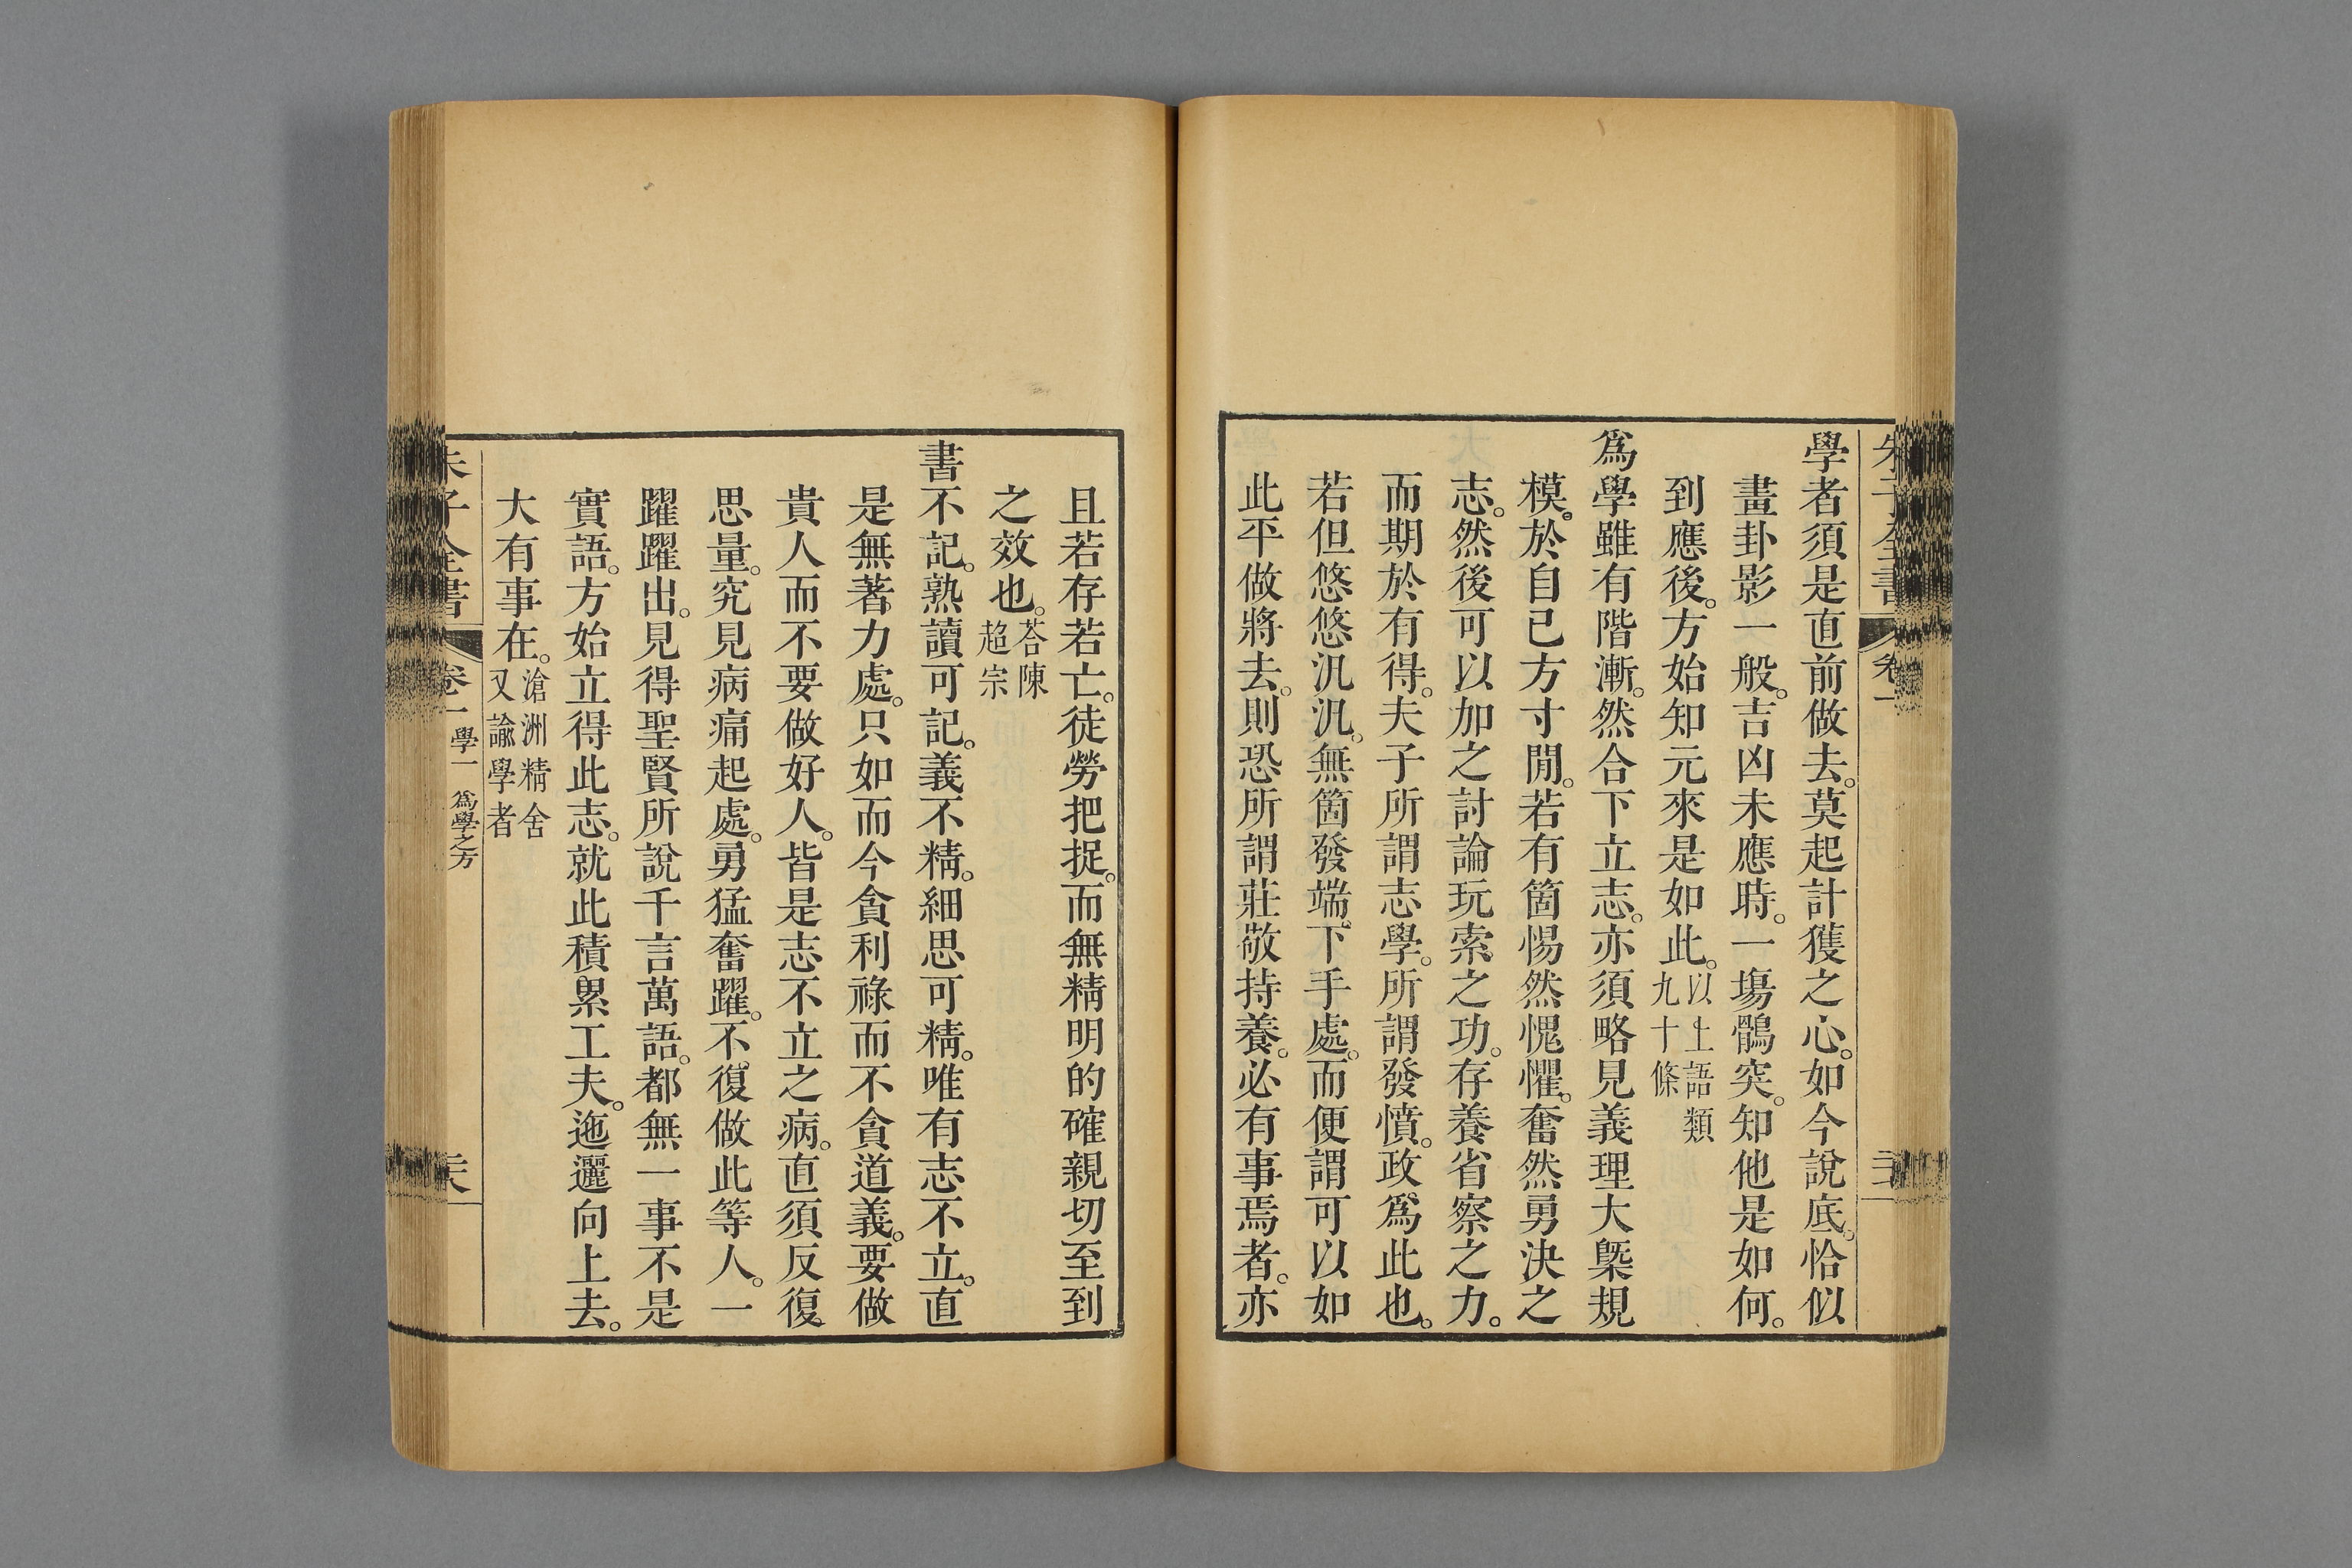 朱子全書 卷一
學者須是直前做去。莫起計獲之心。如今說底。恰似
畫卦影一般。吉凶未應時。一場鶻突。知他是如何。
到應後。方始知元來是如此。以上語類九十條
爲學雖有階漸。然合下立志。亦須略見義理大槩規
模。於自己方寸閒。若有箇惕然愧懼。奮然勇決之
志。然後可以加之討論玩索之功。存養省察之力。
而期於有得。夫子所謂志學。所謂發憤。政爲此也。
若但悠悠汎汎。無箇發端。下手處。而便謂可以如
此平做將去。則恐所謂莊敬持養。必有事焉者。亦
且若存若亡。徒勞把捉。而無精明的確親切至到
之效也。荅陳超宗
書不記。熟讀可記。義不精。細思可精。唯有志不立。直
是無著力處。只如而今貪利祿而不貪道義。要做
貴人而不要做好人。皆是志不立之病。直須反復
思量。究見病痛起處。勇猛奮躍。不復做此等人。一
躍躍出。見得聖賢所說千言萬語。都無一事不是
實語。方始立得此志。就此積累工夫。迤邐向上去。
大有事在。滄洲精舍又諭學者
朱子全書 卷一 學一 爲學之方